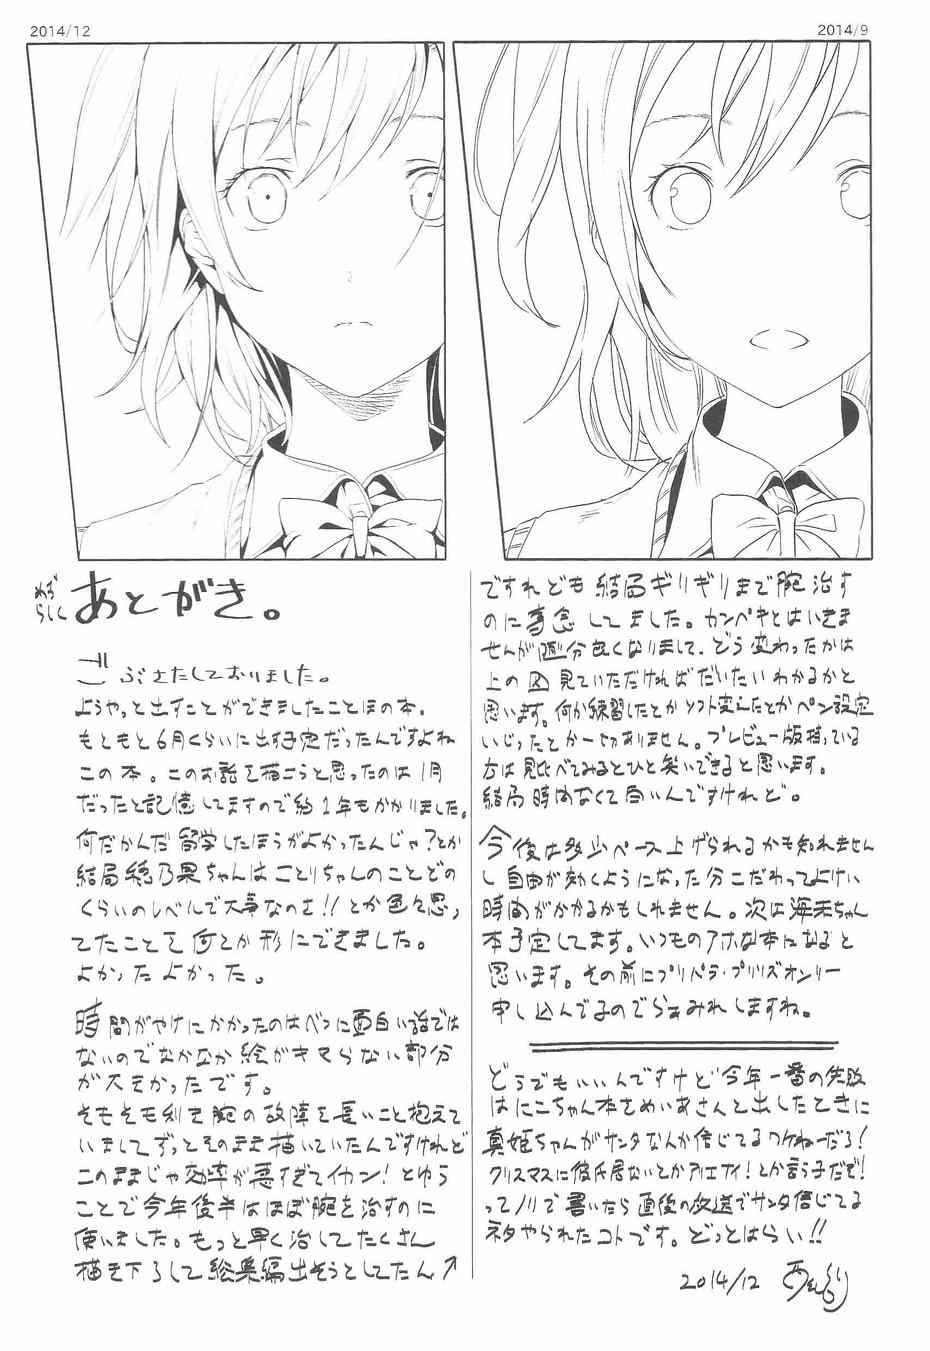 2014/12
2014/9
めずらしく
あとがき。
ごぶさたしておりました。
ようやっと出すことができましたことほの本。
もともと6月くらいに出す予定だったんですよね
この本。このお話を描こうと思ったのは1月
だったと記憶してますので約1年もかかりました。
何だかんだ留学したほうがよかったんじゃ?とか
結局穂乃果ちゃんはことりちゃんのことどの
くらいのレベルで大事なのさ!!とか色々思っ
てたことを何とか形にできました。
よかったよかった。
時間がやけにかかったのはべつに面白い話では
ないのでなかなか絵がキマらない部分
が大きかったです。
そもそも利き腕の故障を長いこと抱えて
いましてずっとそのまま描いていたんですけれど
このままじゃ効率が悪すぎてイカン!とゆう
ことで今年後半はほぼ腕を治すのに
使いました。もっと早く治してたくさん
描き下ろして総集編出そうとしてたん↗
ですれども結局ギリギリまで腕治す
のに専念してました。カンペキとはいきま
せんが随分良くなりまして、どう変わったかは
上の図見ていただければだいたいわかるかと
思います。何か練習したとかソフト変えたとかペン設定
いじったとか一切ありません。プレビュー版持っている
方は見比べてみるとひと笑いできると思います。
結局時間なくて白いんですけれど。
今後は多少ペース上げられるかも知れません
し自由が効くようになった分こだわってよけい
時間がかかるかもしれません。次は海未ちゃん
本予定してます。いつものアホな本になると
思います。その前にプリパラ・プリリズオンリー
申し込んでるのでらぁみれしますね。
どうでもいいんですけど今年一番の失敗
はにこちゃん本をめいあさんと出したときに
真姫ちゃんがサンタなんか信じてるワケねーだろ!
クリスマスに彼氏居ないとかアリエナイ!とか言う子だぜ!
ってノリで書いたら直後の放送でサンタ信じてる
ネタやられたコトです。どっとはらい!!
2014/12